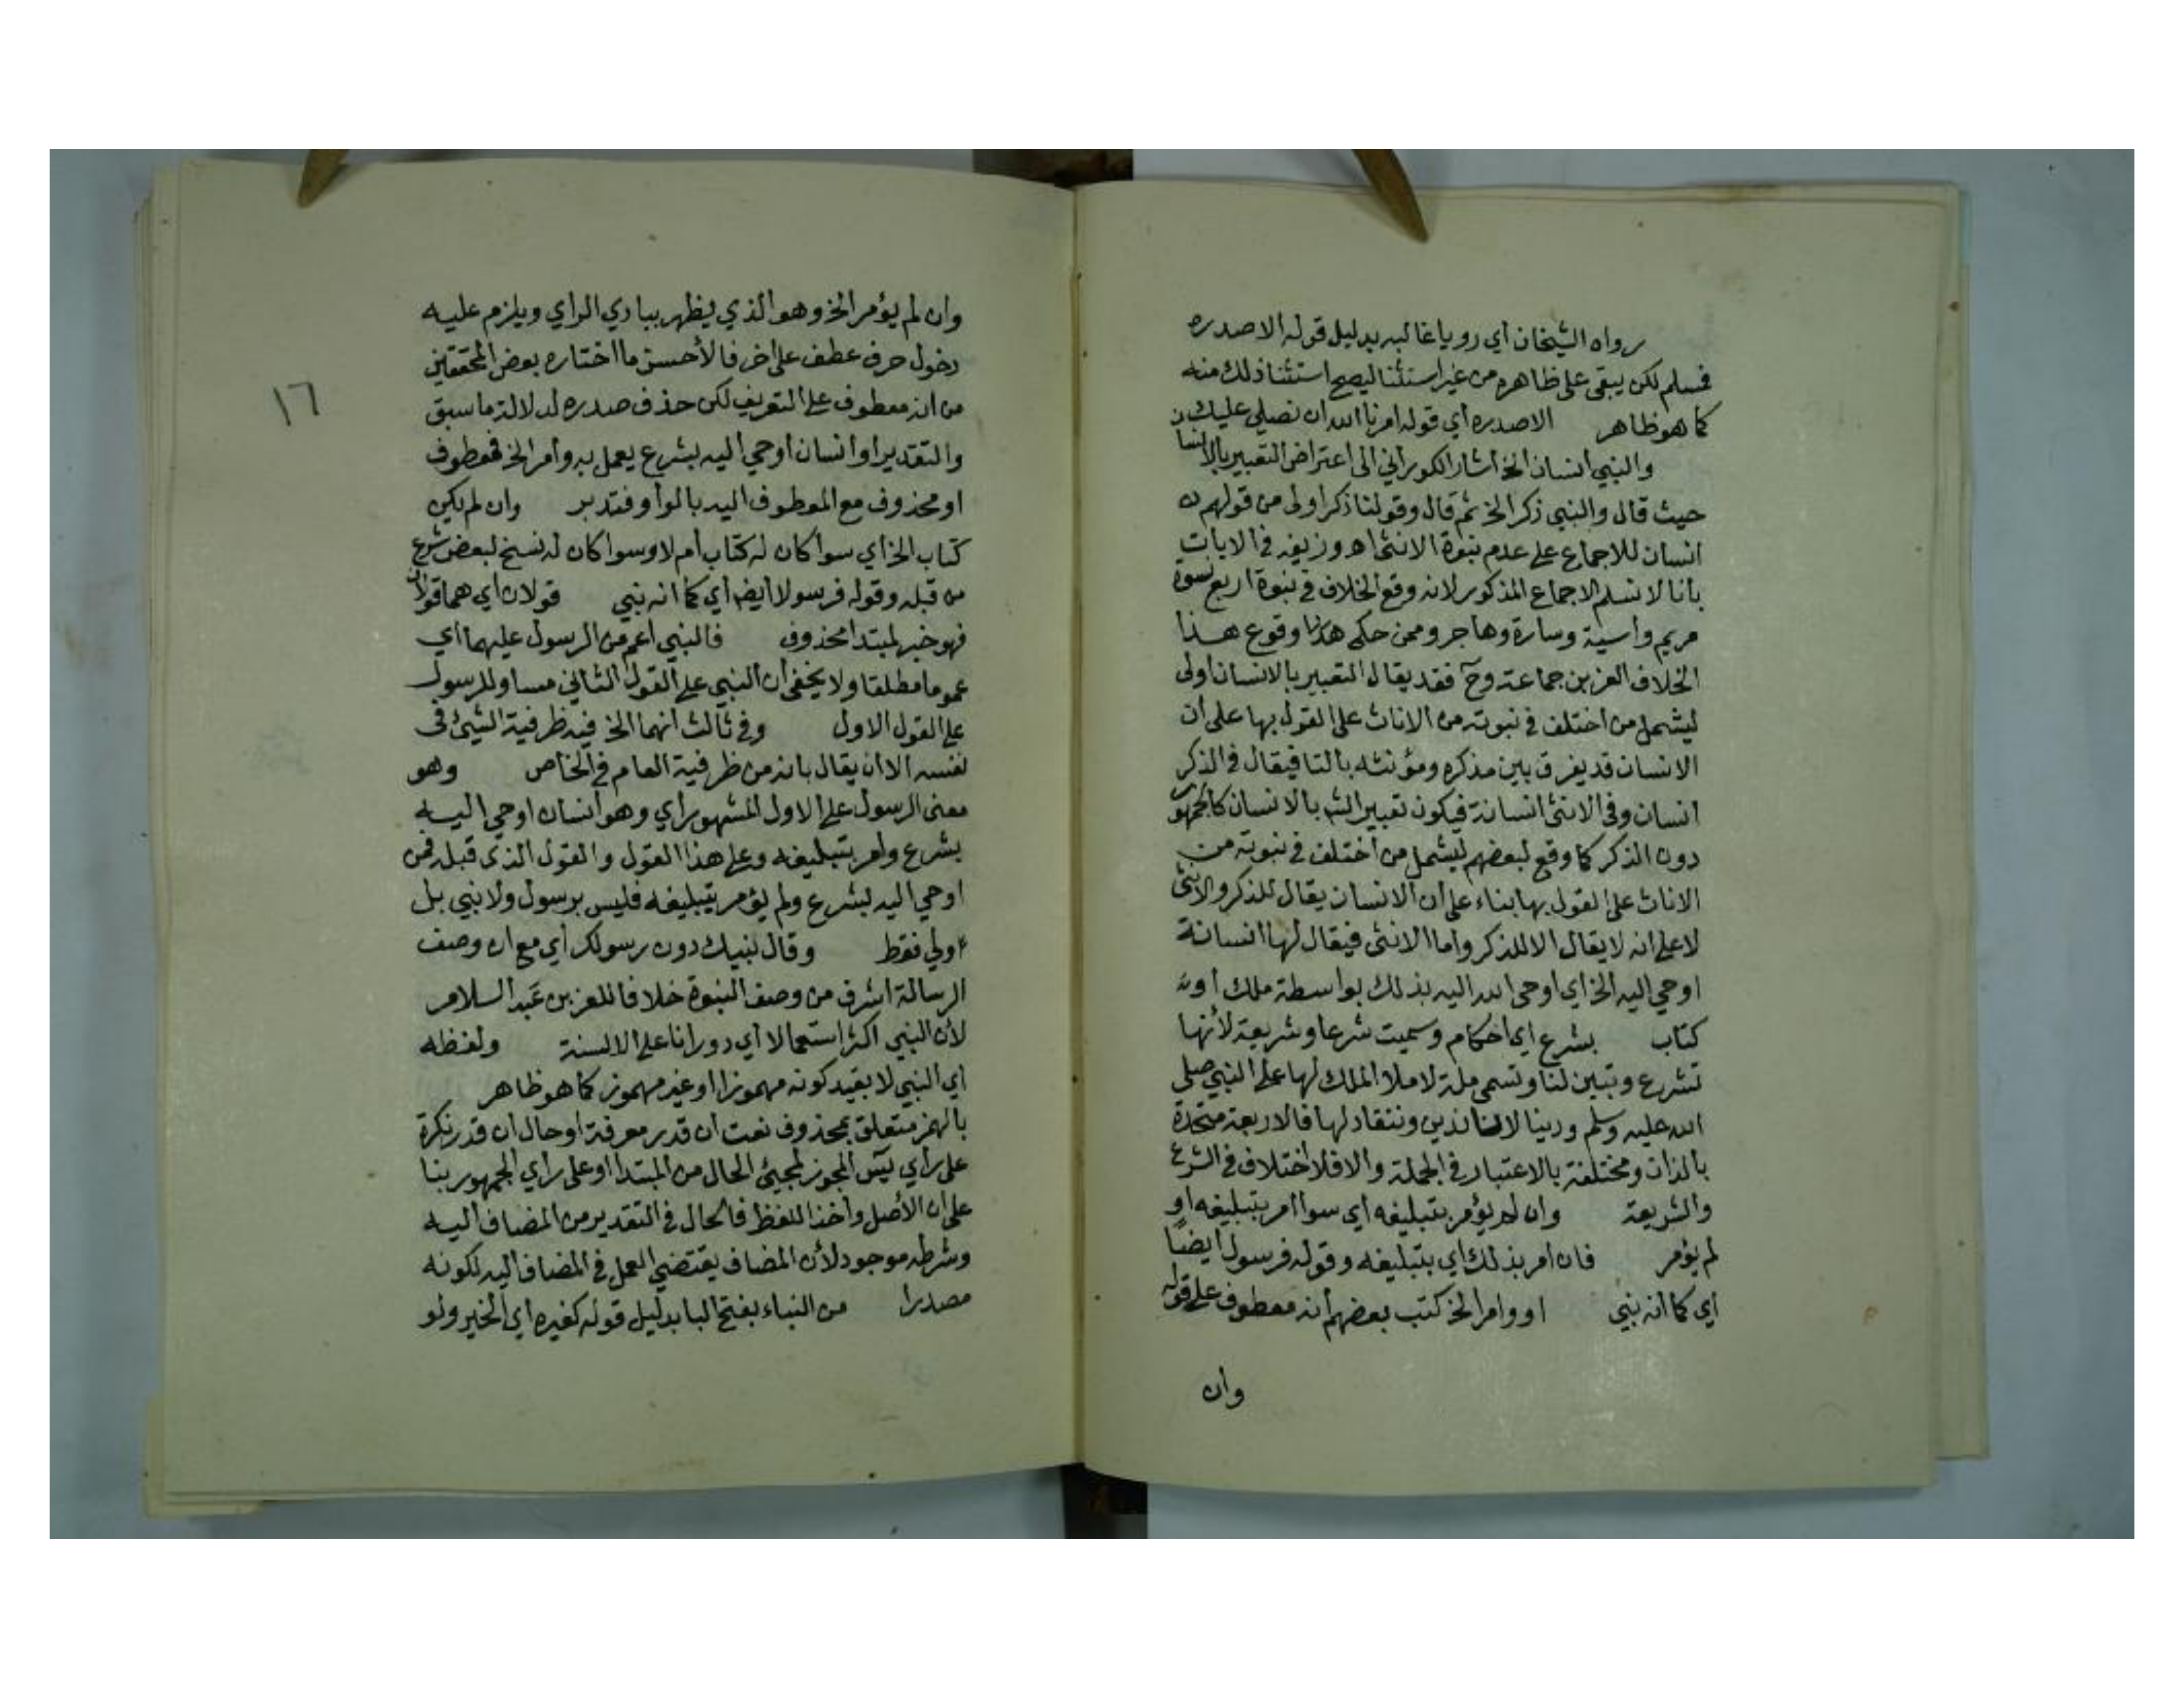 رواه الشيخان أي رويا غالبه بدليل قوله الاصدره
فمسلم لكن يبقى على ظاهره من غير استثنا ليصح استثنا ذلك منه
كما هو ظاهر الاصدره أي قوله امرنا الله ان نصلي عليك
والنبي انسان الخ اشار الكوراني الى اعتراض التعبير بالانسان
حيث قال والنبي ذكر الخ ثم قال وقولنا ذكر اولى من قولهم
انسان للاجماع على عدم نبوة الانثى اه وزيفه في الايات
بانا لا نسلم الاجماع المذكور لانه وقع الخلاف في نبوة اربع نسوة
مريم واسية وسارة وهاجر وممن حكى وقوع هذا
الخلاف العز بن جماعة وح فقد يقال التعبير بالانسان اولى
ليشمل من اختلف في نبوته من الاناث على القول بها على أن
الانسان قد يفرق بين مذكره ومؤنثه بالتا فيقال في الذكر
انسان وفي الانثى انسانة فيكون تعبير الش بالانسان كالجمهور
دون الذكر كما وقع لبعضهم ليشمل من اختلف في نبوته من
الاناث على القول بها بناء على ان الانسان يقال للذكر والانثى
لا على انه لا يقال الا للذكر واما الانثى فيقال لها انسانة
اوحي اليه الخ اي اوحى الله اليه بذلك بواسطة ملك او
كتاب بشرع اي احكام وسميت شرعا وشريعة لأنها
تشرع وتبين لنا وتسمى ملة لاملا الملك لها على النبي صلى
الله عليه وسلم ودينا لاننا ندين وننقاد لها فالاربعة متحدة
بالذات ومختلفة بالاعتبار في الجملة والا فلا اختلاف في الشرع
والشريعة وان لم يؤمر بتبليغه اي سوا امر بتبليغه او
لم يؤمر فان امر بذلك اي بتبليغه وقوله فرسول ايضًا
أي كما انه نبي او وامر الخ كتب بعضهم أنه معطوف على قوله
وان
١٦
وان لم يؤمر الخ وهو الذي يظهر ببادي الراي ويلزم عليه
دخول حرف عطف على اخر فالأحسن ما اختاره بعض المحققين
من انه معطوف على التعريف لكن حذف صدره لدلالة ما سبق
والتقدير او انسان اوحي اليه بشرع يعمل به وأمر الخ فمعطوف
او محذوف مع المعطوف اليه بالواو فتدبر وان لم يكن
كتاب الخ اي سوا كان له كتاب أم لا وسوا كان له نسخ لبعض شرع
من قبله وقوله فرسول ايض أي كما انه نبي قولان اي هما قولان
فهو خبر لمبتدا محذوف فالنبي اعم من الرسول عليهما أي
عموما مطلقا ولا يخفى ان النبي على القول الثاني مساو للرسول
على القول الاول وفي ثالث انهما الخ فيه ظرفية الشيئ في
نفسه الا ان يقال بانه من ظرفية العام في الخاص وهو
معنى الرسول على الاول المشهور اي وهو انسان اوحي اليه
بشرع وامر بتبليغه وعلى هذا القول والقول الذي قبله فمن
اوحي اليه بشرع ولم يؤمر بتبليغه فليس برسول ولا نبي بل
ولي فقط وقال نبيك دون رسولك أي مع ان وصف
الرسالة اشرف من وصف النبوة خلافا للعز بن عبد السلام
لأن النبي اكثر استعمالا أي دورانا على الالسنة ولفظه
أي النبي لا بقيد كونه مهموزا او غير مهموز كما هو ظاهر
بالهمز متعلق بمحذوف نعت ان قدر معرفة او حال ان قدر نكرة
على رأي س المجوز لمجيئ الحال من المبتدا او على راي الجمهور بنا
على ان الأصل واخذ اللفظ فالحال في التقدير من المضاف اليه
وشرطه موجود لأن المضاف يقتضي العمل في المضاف اليه لكونه
مصدرا من النباء بفتح البا بدليل قوله كغيره اي الخبر ولو